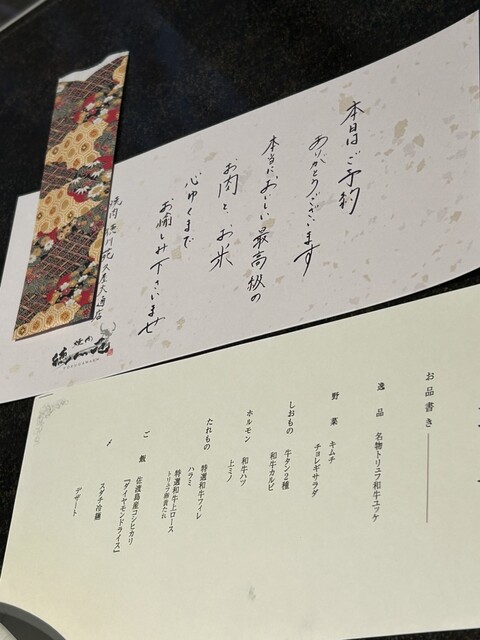 本日はご予約
ありがとうございます
本当においしい最高級の
お肉と、お米
心ゆくまで
お愉しみ下さいませ
焼肉 徳川苑 久屋大通店
焼肉
徳川苑
TOKUGAWAEN
お品書き
逸品 名物トリュフ和牛ユッケ
野菜 キムチ
チョレギサラダ
しおもの 牛タン2種
和牛カルビ
ホルモン 和牛ハツ
上ミノ
たれもの 特選和牛フィレ
ハラミ
特選和牛上ロース
トリュフ卵黄たれ
ご飯 佐渡島産コシヒカリ
『ダイヤモンドライス』
〆 スダチ冷麺
デザート